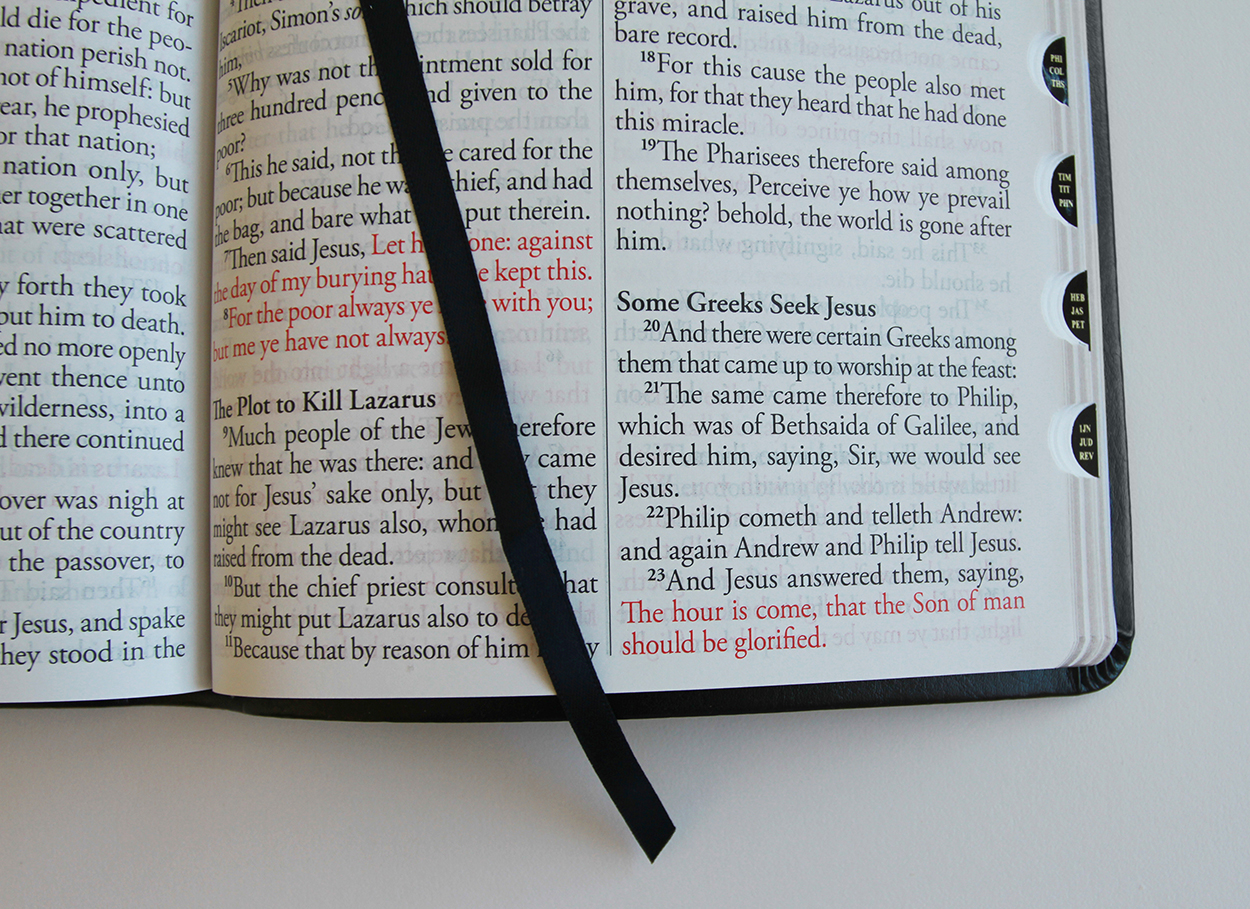 for
die for the
nation perish not.
of himself: but
he prophesied
that nation;
nation only, but
together in one
were scattered
forth they took
him to death.
no more openly
thence unto
into a
there continued
was nigh at
of the country
the passover, to
Jesus, and spake
stood in the
Simon's should betray
him,
⁵Why was not sold for
three hundred given to the
poor?
⁶This he said, not cared for the
poor; but because he and had
the bag, and bare what put therein.
⁷Then said Jesus, Let against
the day of my burying kept this.
⁸For the poor always ye with you;
but me ye have not always.
The Plot to Kill Lazarus
⁹Much people of the
knew that he was there: and came
not for Jesus' sake only, but they
might see Lazarus also, whom had
raised from the dead.
¹⁰But the chief priest
they might put Lazarus also to
¹¹Because that by reason of him
out of his
grave, and raised him from the dead,
bare record.
¹⁸For this cause the people also met
him, for that they heard that he had done
this miracle.
¹⁹The Pharisees therefore said among
themselves, Perceive ye how ye prevail
nothing? behold, the world is gone after
him.
Some Greeks Seek Jesus
²⁰And there were certain Greeks among
them that came up to worship at the feast:
²¹The same came therefore to Philip,
which was of Bethsaida of Galilee, and
desired him, saying, Sir, we would see
Jesus.
²²Philip cometh and telleth Andrew:
and again Andrew and Philip tell Jesus.
²³And Jesus answered them, saying,
The hour is come, that the Son of man
should be glorified.
PHI
COL
THS
TIM
TIT
PHN
HEB
JAS
PET
IJN
JUD
REV